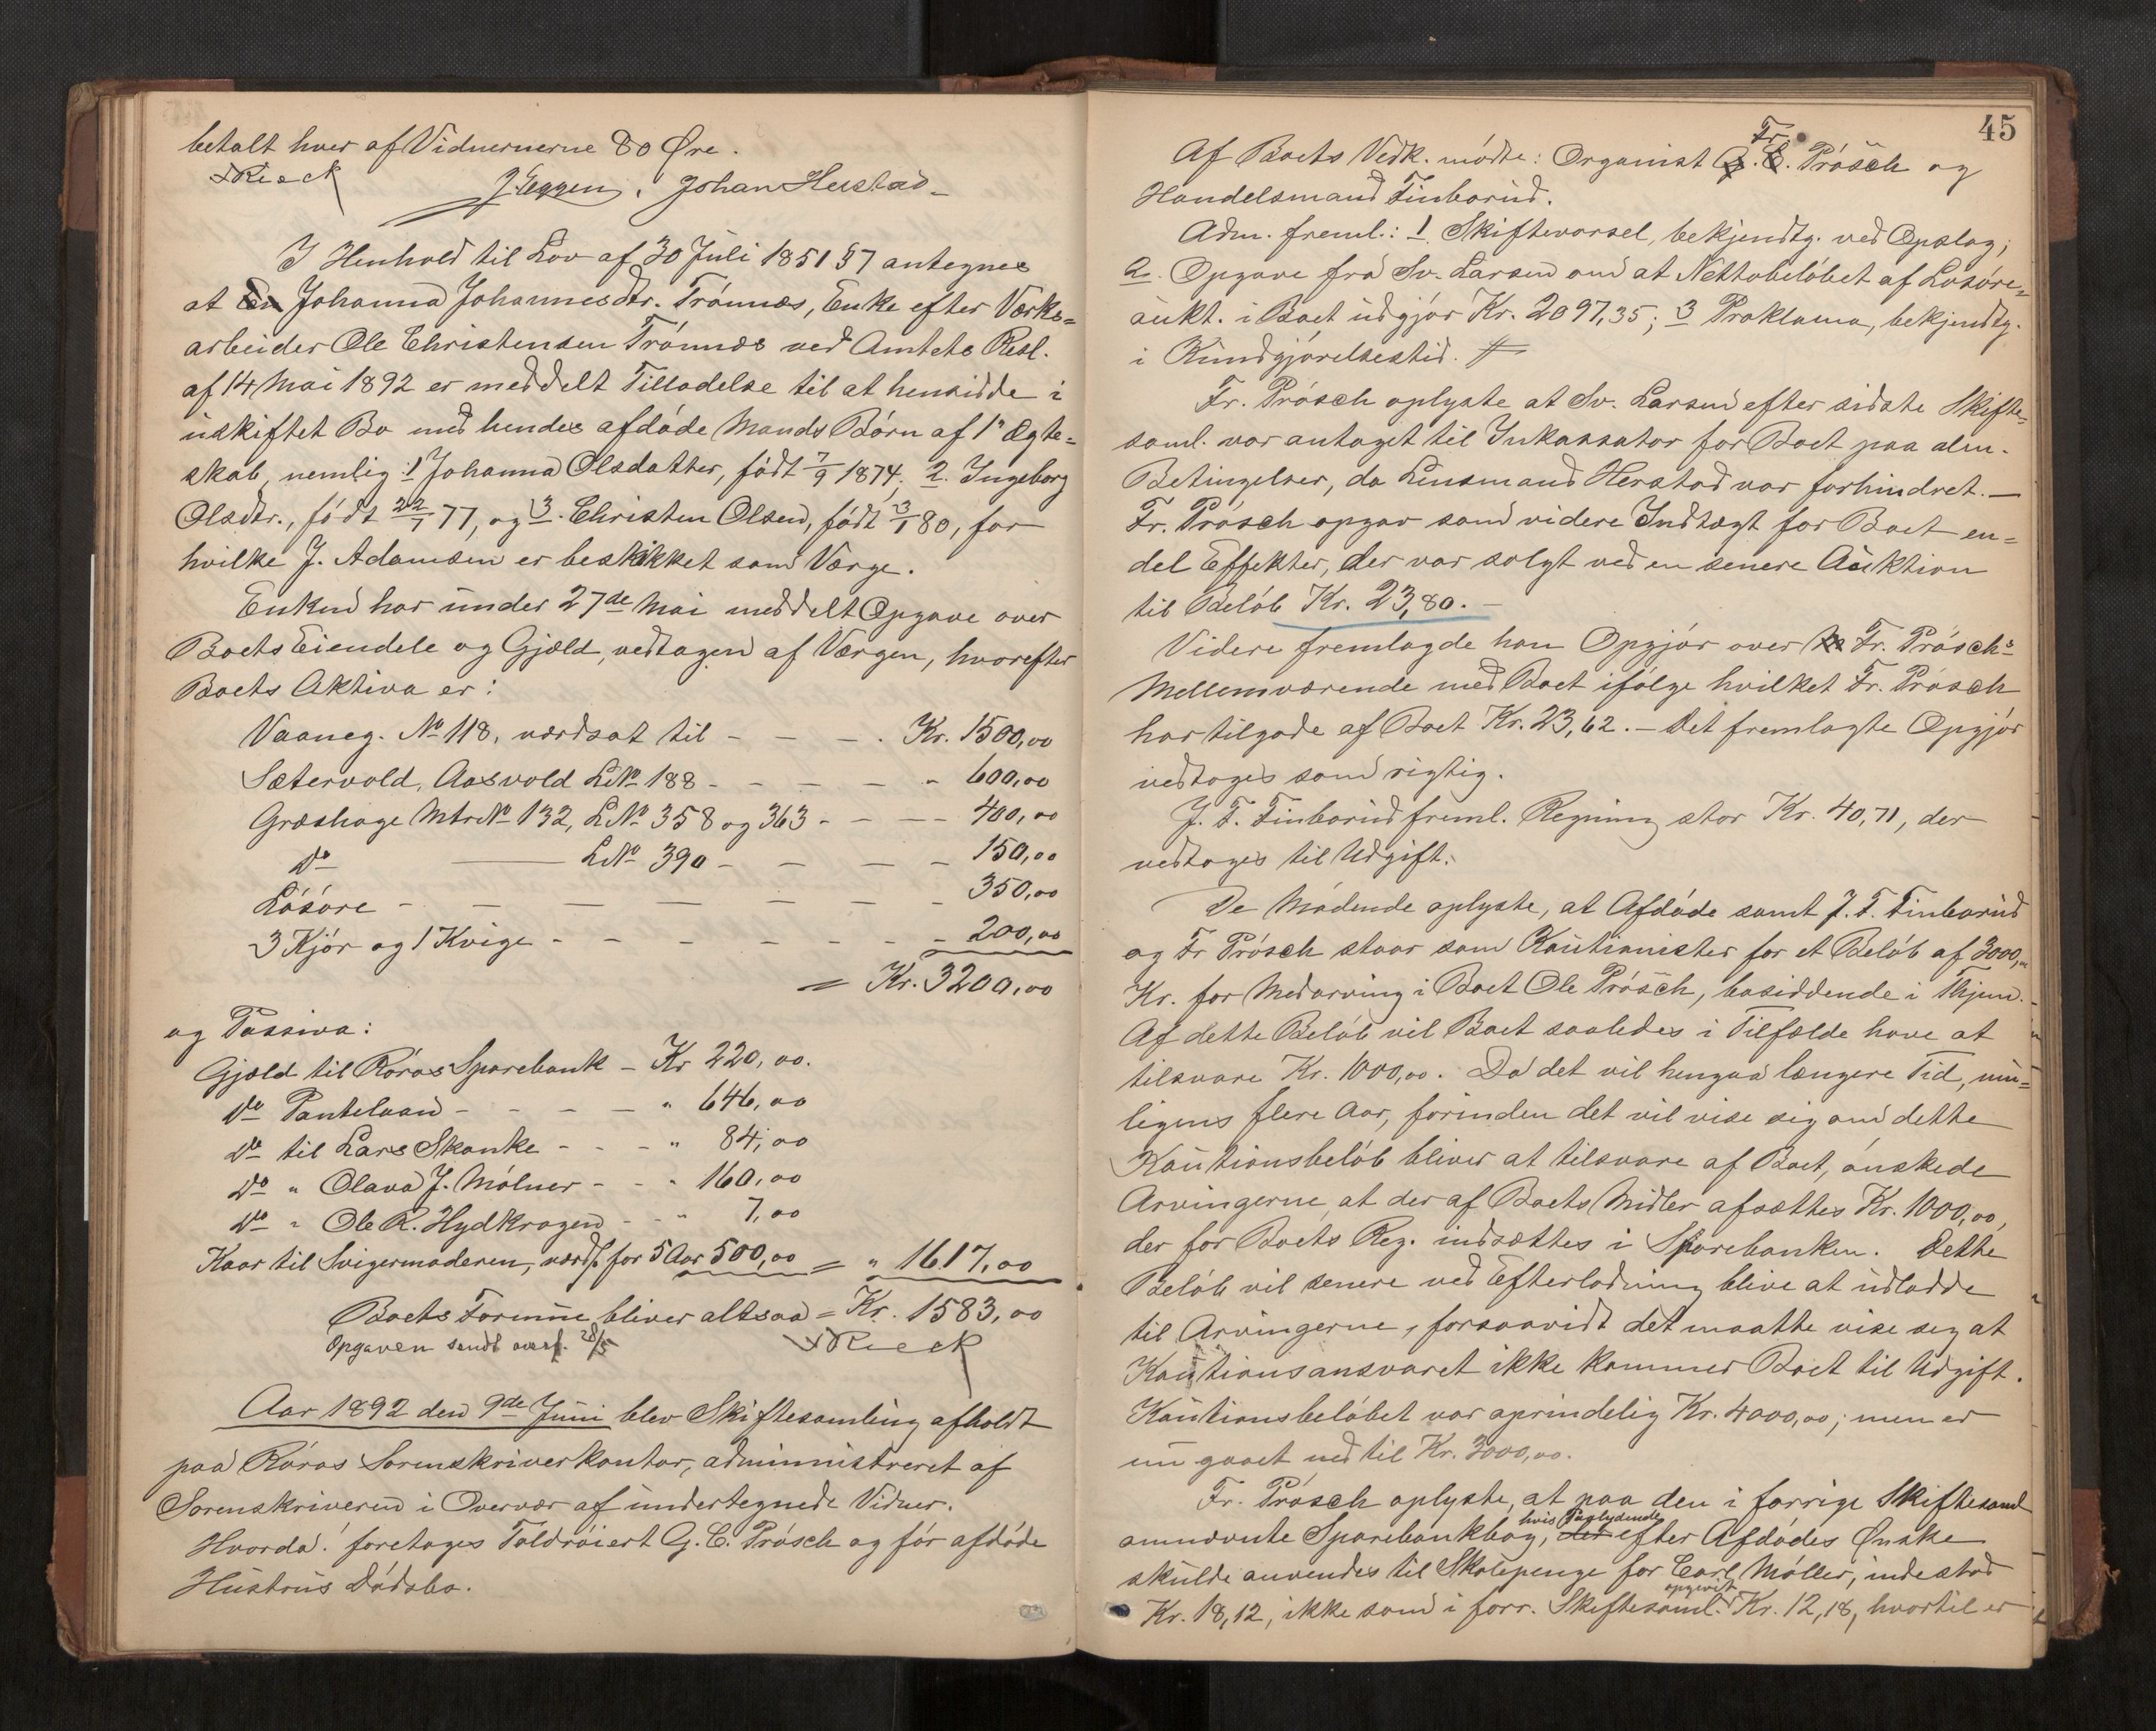 betalt hver af Vidnernerne 80 Øre.
Rieck
J. Eggen. Johan Herstad
I Henhold til Lov af 30 Juli 1851 § 7 antegnes
at Johanna Johannesdtr. Trønnæs, Enke efter Værks=
arbeider Ole Christensen Trønnæs ved Amtets Resl.
af 14 Mai 1892 er meddelt Tilladelse til at hensidde i
uskiftet Bo med hendes afdøde Mands Børn af 1ste Ægte=
skab, nemlig: 1 Johanna Olsdatter, født 7/9 1874, 2. Ingeborg
Olsdtr., født 22/1 77, og 3. Christen Olsen, født 3/1 80, for
hvilke J. Adamsen er beskikket som Værge.
Enken har under 27de Mai meddelt Opgave over
Boets Eiendele og Gjæld, vedtagen af Værgen, hvorefter
Boets Aktiva er:
Vaaneg. No 118, værdsat til - - - . Kr. 1500,00
Sætervold, Aasvold LNo 188 - - - - - " 600,00
Græshage MtrNo 132, LNo 358 og 363 - - - - 400,00
Do LNo 390 - - - - 150,00
Løsøre - - - - - - - 350,00
3 Kjør og 1 Kvige - - - - - - - 200,00
= Kr. 3200,00
og Passiva:
Gjæld til Røros Sparebank - Kr 220,00.
Do Pantelaan - - - - " 646,00
Do til Lars Skanke - - - " 84,00
Do " Olava J. Mølner - - " 160,00
Do " Ole R. Hydkragen - - " 7,00
Kaar til Svigermoderen, værds. for 5 Aar 500,00 = " 1617,00
Boets Formue bliver altsaa = Kr. 1583,00
Opgaven sendt overf. 28/5
Rieck
Aar 1892 den 9de Juni blev Skiftesamling afholdt
paa Røros Sorenskriverkontor, administreret af
Sorenskriveren i Overvær af undertegnede Vidner.
Hvorda: foretoges Toldrøiert G. C. Prøsch og før afdøde
Hustrus Dødsbo.
45
Af Boets Vedk. mødte: Organist Fr. Prøsch og
Handelsmand Finborud.
Adm. freml.: 1. Skiftevarsel, bekjendtg. ved Opslag;
2. Opgave fra Sv. Larsen om at Nettobeløbet af Løsøre=
aukt. i Boet udgjør Kr. 2097,35; 3 Proklama, bekjendtg.
i Kundgjørelsestid.
Fr. Prøsch oplyste at Sv. Larsen efter sidste Skifte=
saml. var antaget til Inkassator for Boet paa alm.
Betingelser, da Lensmand Herstad var forhindret. —
Fr. Prøsch opgav som videre Indtægt for Boet en=
del Effekter, der var solgt ved en senere Auktion
til Beløb Kr. 23,80. —
Videre fremlagde han Opgjør over Fr. Prøsch's
Mellemværende med Boet ifølge hvilket Fr. Prøsch
har tilgode af Boet Kr. 23,62. — Det fremlagte Opgjør
vedtages som rigtig.
J. F. Finborud freml. Regning stor Kr. 40,71, der
vedtages til Udgift.
De Mødende oplyste, at Afdøde samt J. F. Finborud
og Fr Prøsch staar som Kautionister for et Beløb af 3000,00
Kr. for Medarving i Boet Ole Prøsch, bosiddende i Thjem.
Af dette Beløb vil Boet saaledes i Tilfælde have at
tilsvare Kr. 1000,00. Da det vil hengaa længere Tid, mu=
ligens flere Aar, forinden det vil vise sig om dette
Kautionsbeløb bliver at tilsvare af Boet, ønskede
Arvingerne, at der af Boets Midler afsættes Kr. 1000,00,
der for Boets Reg. indsættes i Sparebanken. Dette
Beløb vil senere ved Efterlodning blive at udlodde
til Arvingerne, forsaavidt det maatte vise sig at
Kautionsansvaret ikke kommer Boet til Udgift.
Kautionsbeløbet var oprindelig Kr. 4000,00; men er
nu gaaet ned til Kr. 3000,00.
Fr. Prøsch oplyste, at paa den i forrige Skiftesaml
omnævnte Sparebankbog, hvis Paalydende efter Afdødes Ønske
skulde anvendes til Skolepenge for Carl Møller, indestod
Kr. 18,12, ikke som i forr. Skiftesaml. opgivet Kr. 12,18, hvortil er